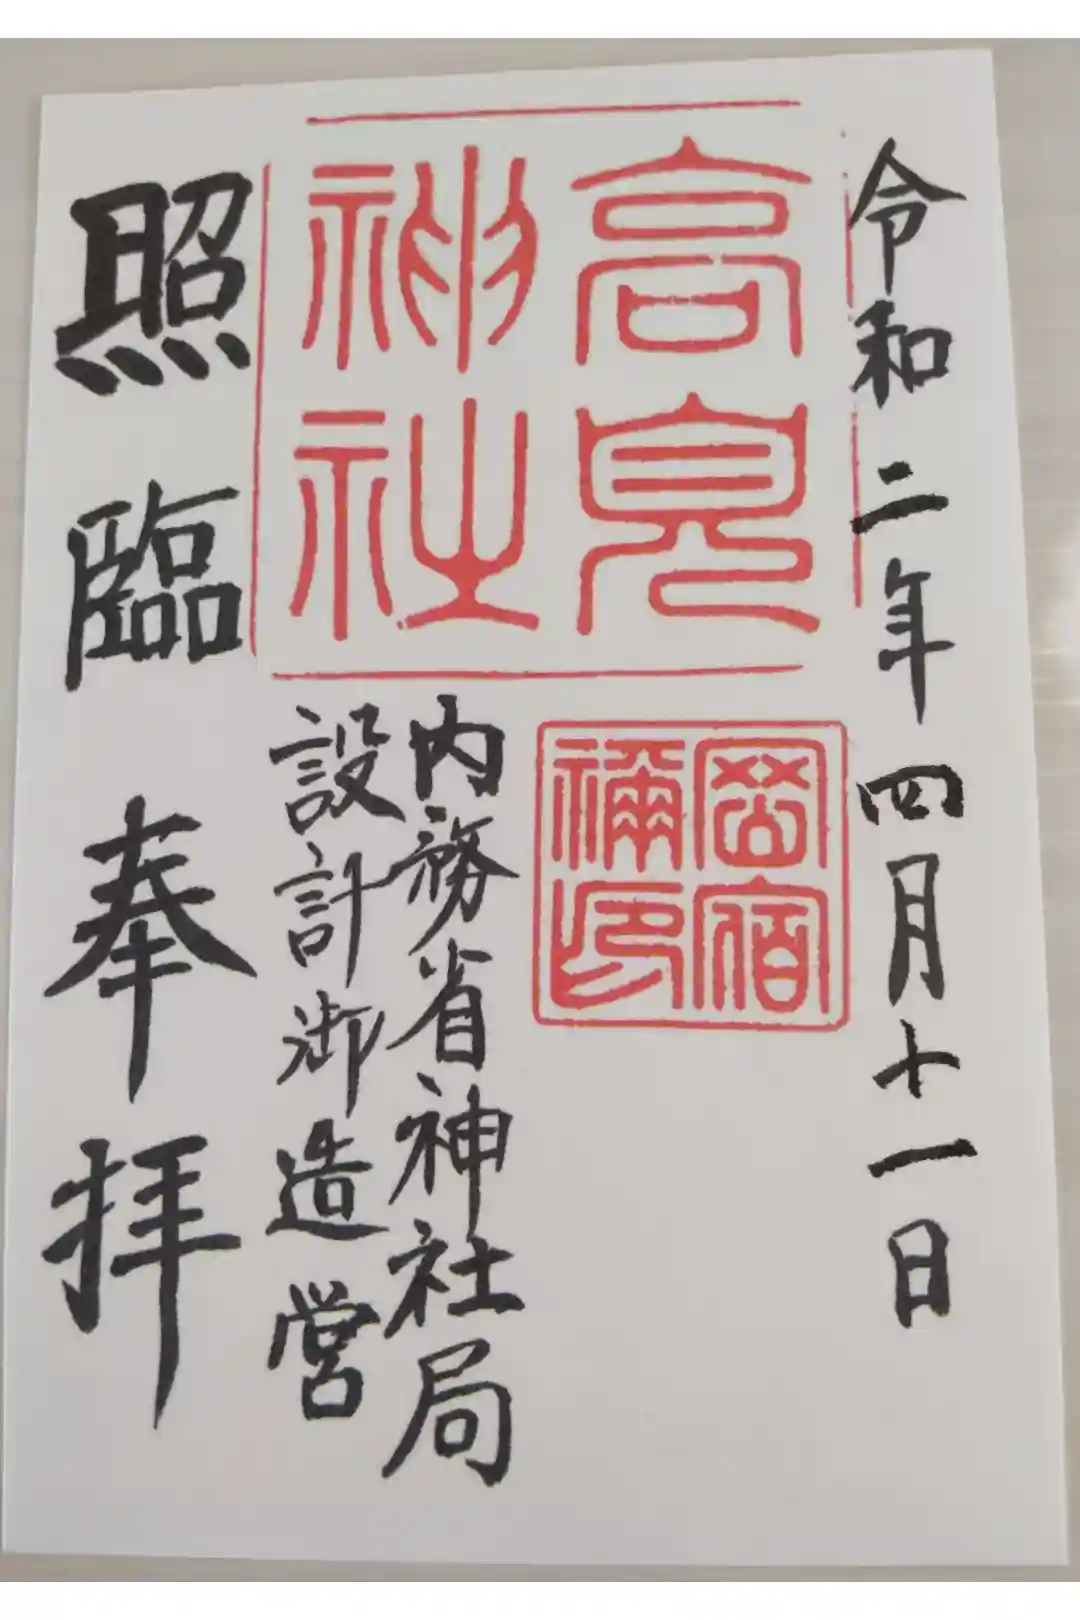 令和二年四月十一日
高見
神社
宿
禰印
内務省神社局
設計御造営
照臨奉拝